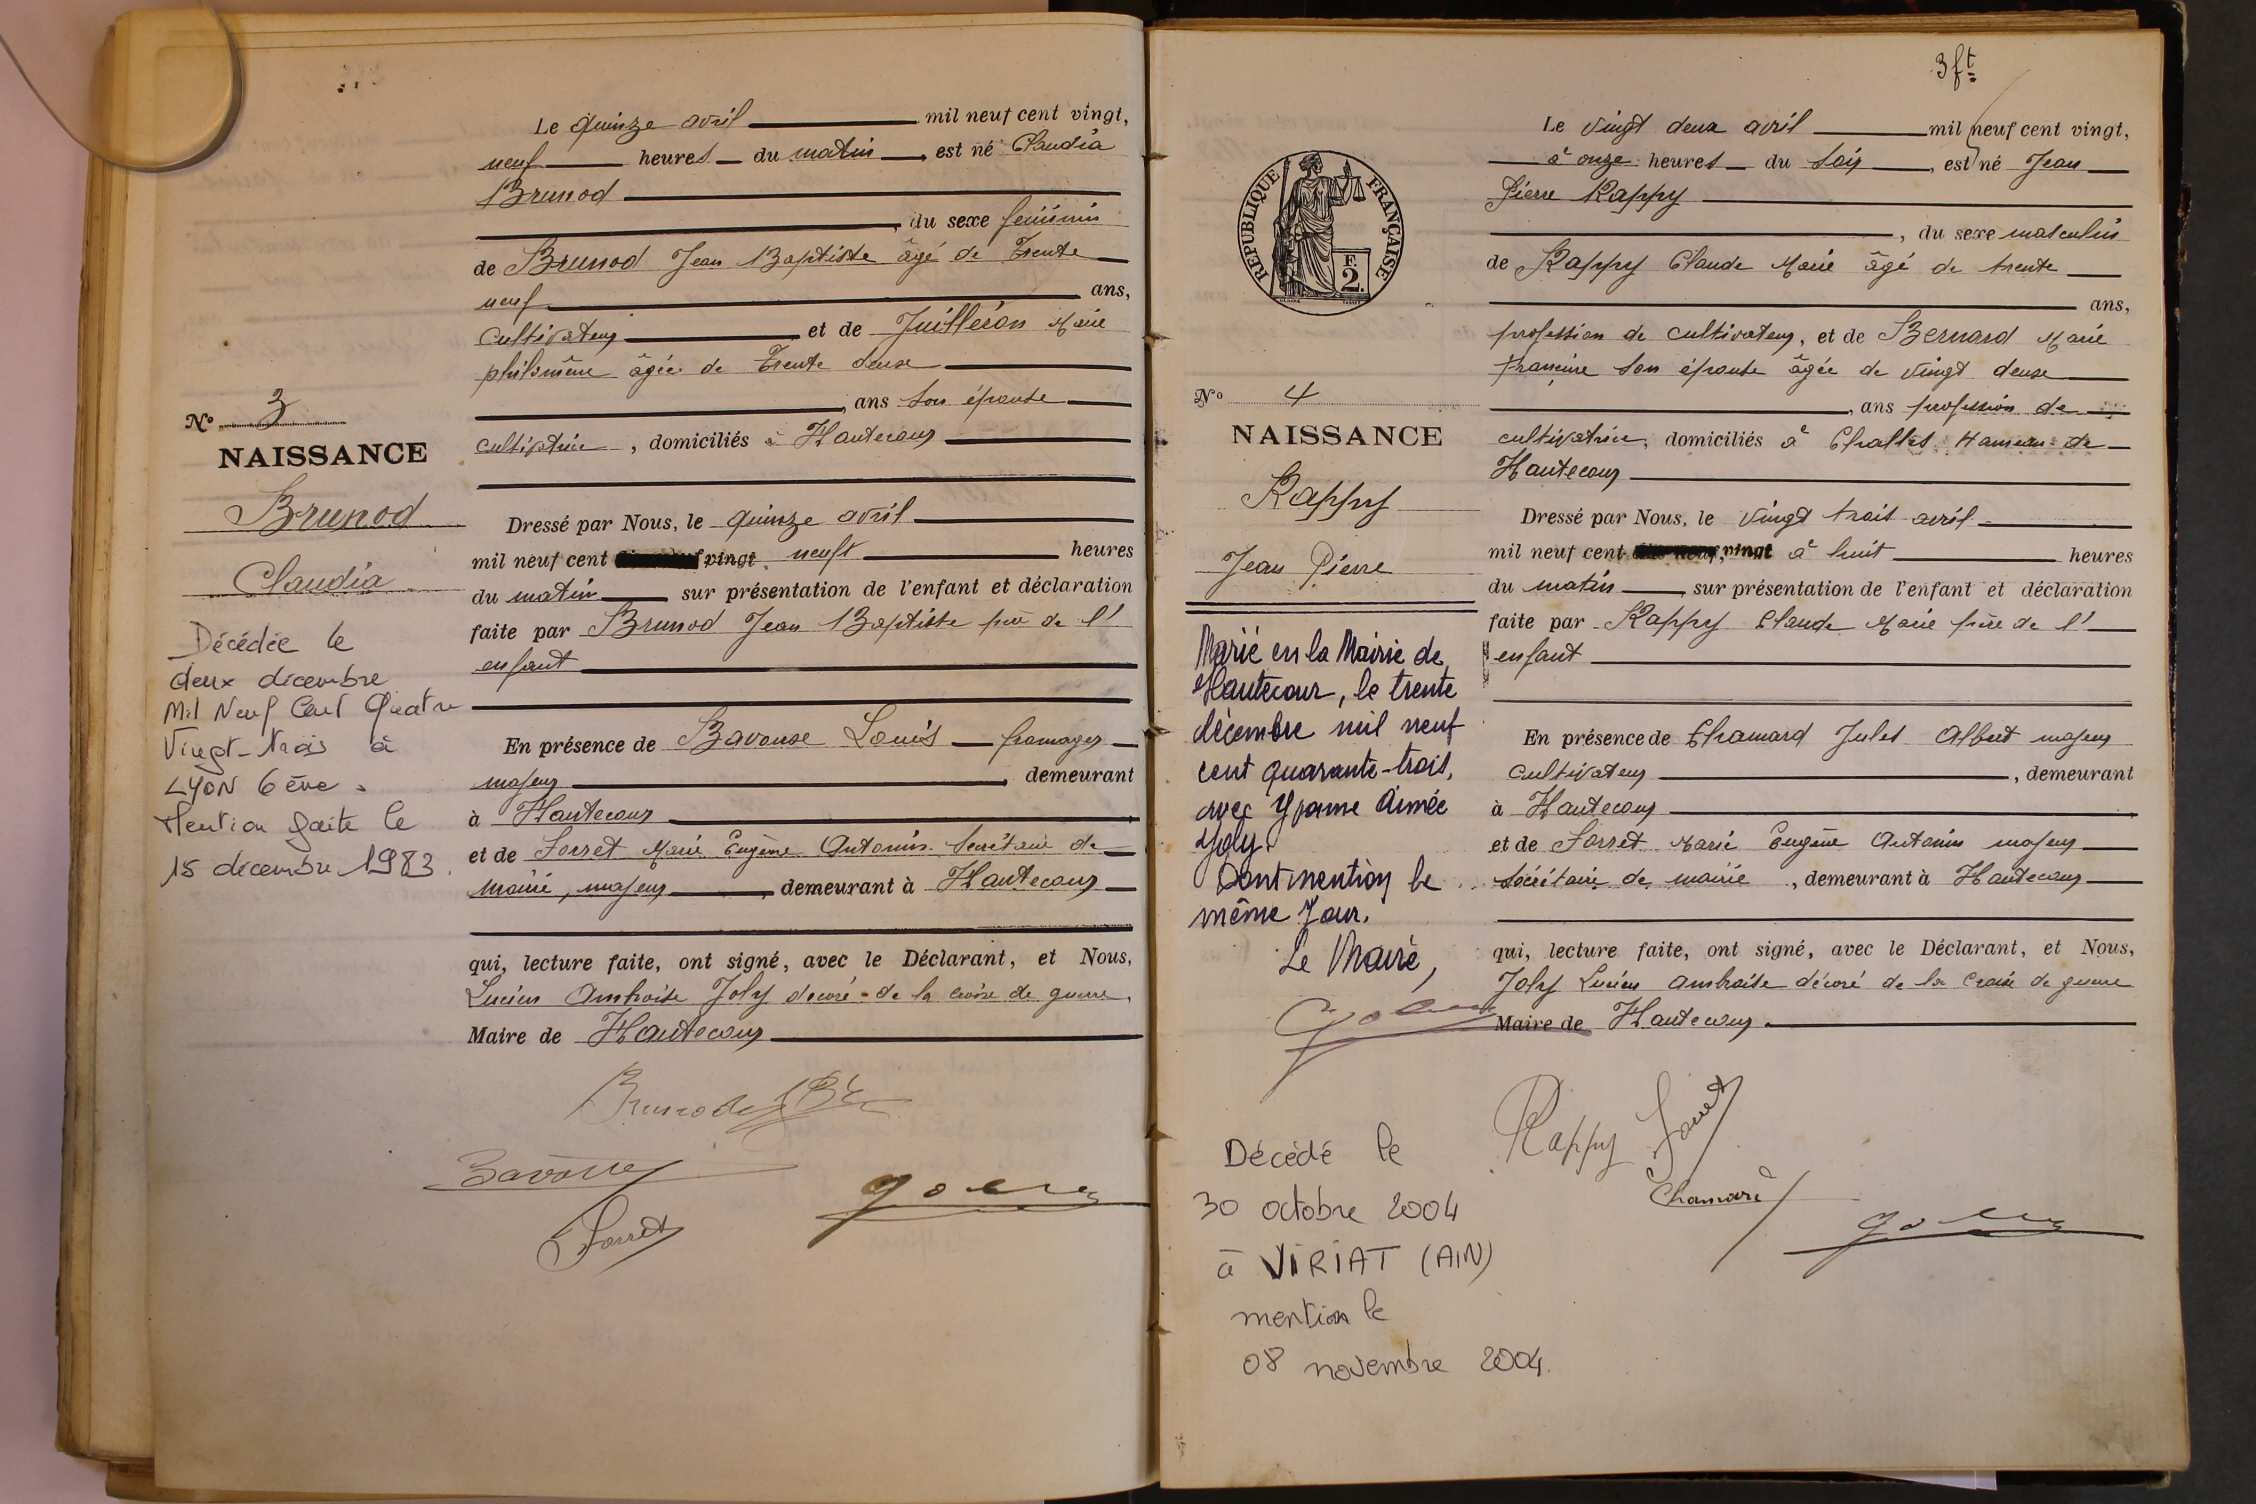 Le quinze avril mil neuf cent vingt,
neuf heures du matin, est né Claudia
Brunod
, du sexe féminin
de Brunod Jean Baptiste âgé de Trente
neuf ans,
cultivateur et de Juilléron Marie
philomène âgée de Trente deux
, ans son épouse
cultivatrice, domiciliés à Hautecour
N° 3
NAISSANCE
Brunod
Claudia
Dressé par Nous, le quinze avril
mil neuf cent vingt, neuf heures
du matin sur présentation de l'enfant et déclaration
faite par Brunod Jean Baptiste père de l'
enfant
Décédée le
deux décembre
Mil Neuf Cent Quatre
Vingt-trois à
LYON 6ème.
Mention faite le
15 décembre 1983.
En présence de Bavoux Louis fromager
majeur, demeurant
à Hautecour
et de Sorret Marie Eugène Antonin Secrétaire de
Mairie, majeur, demeurant à Hautecour
qui, lecture faite, ont signé, avec le Déclarant, et Nous,
Lucien Ambroise Joly décoré de la croix de guerre,
Maire de Hautecour
Sorret
3 ft
Le vingt deux avril mil neuf cent vingt,
à onze heures du soir, est né Jean
Pierre Rappy
, du sexe masculin
de Rappy Claude Marie âgé de trente
ans,
profession de cultivateur, et de Bernard Marie
Françine son épouse âgée de vingt deux
, ans profession de
cultivatrice, domiciliés à Challes Hameau de
Hautecour
RÉPUBLIQUE FRANÇAISE
F.
2.
N° 4
NAISSANCE
Rappy
Jean Pierre
Dressé par Nous, le vingt trois avril
mil neuf cent vingt à huit heures
du matin, sur présentation de l'enfant et déclaration
faite par Rappy Claude Marie père de l'
enfant
Marié en la Mairie de
Hautecour, le trente
décembre mil neuf
cent quarante-trois,
avec Yvonne Aimée
Joly.
Dont mention le
même jour.
Le Maire,
En présence de Chamard Jules Albert majeur
cultivateur, demeurant
à Hautecour
et de Sorret Marie Eugène Antonin majeur
sécrétaire de mairie, demeurant à Hautecour
qui, lecture faite, ont signé, avec le Déclarant, et Nous,
Joly Lucien Ambroise décoré de la Croix de guerre
Maire de Hautecour.
Rappy Sorret
Chamard
Décédé le
30 octobre 2004
à VIRIAT (AIN)
mention le
08 novembre 2004.